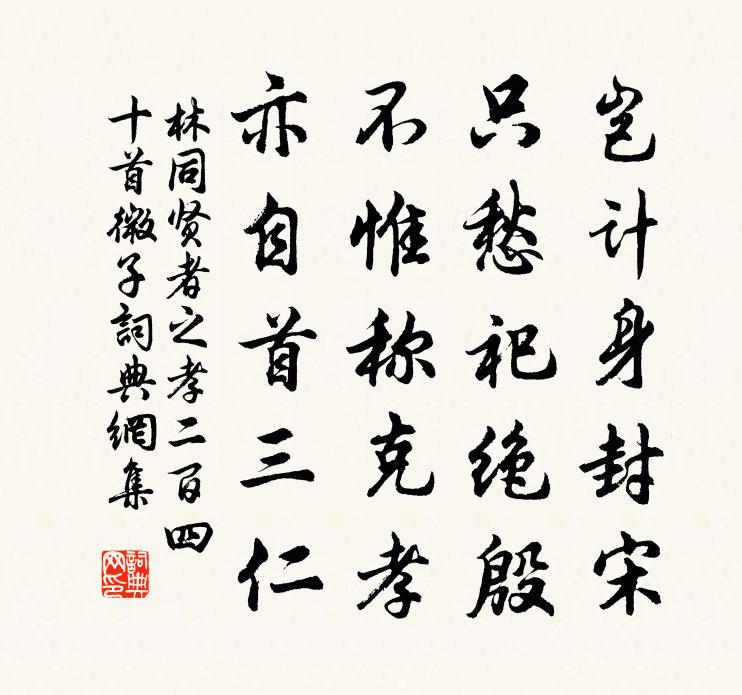 岂计身封宋
只愁祀绝殷
不惟称克孝
亦自首三仁
林同贤者之孝二百四
十首微子詞典網集
詞典
网印